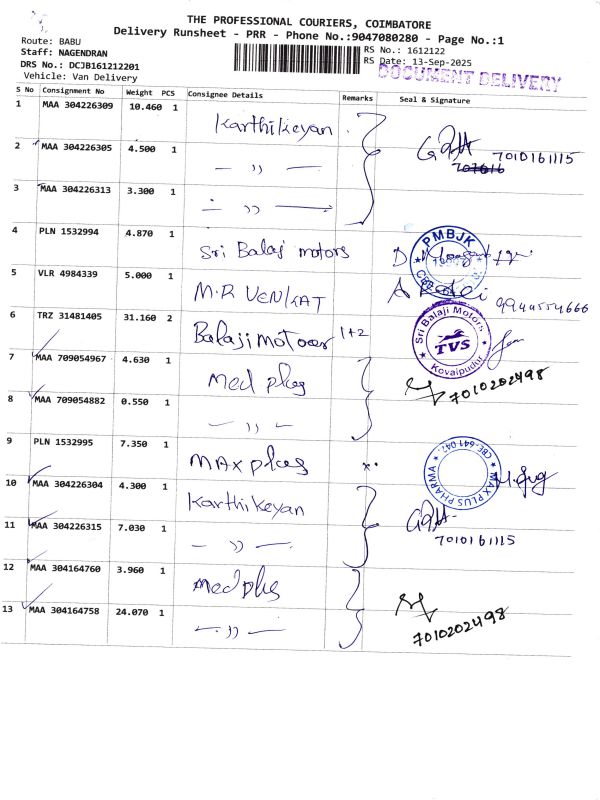 THE PROFESSIONAL COURIERS, COIMBATORE
Delivery Runsheet - PRR - Phone No.:9047080280 - Page No.:1
Route: BABU
Staff: NAGENDRAN
DRS No.: DCJB161212201
Vehicle: Van Delivery
RS No.: 1612122
RS Date: 13-Sep-2025
DOCUMENT DELIVERY
S No Consignment No Weight PCS Consignee Details Remarks Seal & Signature
1 MAA 304226309 10.460 1 Karthikeyan
7010161115
2 MAA 304226305 4.500 1 — ,, —
3 MAA 304226313 3.300 1 — ,, —
4 PLN 1532994 4.870 1 Sri Balaj motors
PMBJK
5 VLR 4984339 5.000 1 M.R VENKAT
9944554666
6 TRZ 31481405 31.160 2 Balaji motoor 1+2
Sri Balaji Motors
TVS
Kovaipudur
7 MAA 709054967 4.630 1 Med plus
7010202498
8 MAA 709054882 0.550 1 — ,, —
9 PLN 1532995 7.350 1 MAX plus
MAX PLUS PHARMA
CBE-641 042.
10 MAA 304226304 4.300 1 Karthikeyan
11 MAA 304226315 7.030 1 — ,, —
7010161115
12 MAA 304164760 3.960 1 Med plus
13 MAA 304164758 24.070 1 — ,, —
7010202498